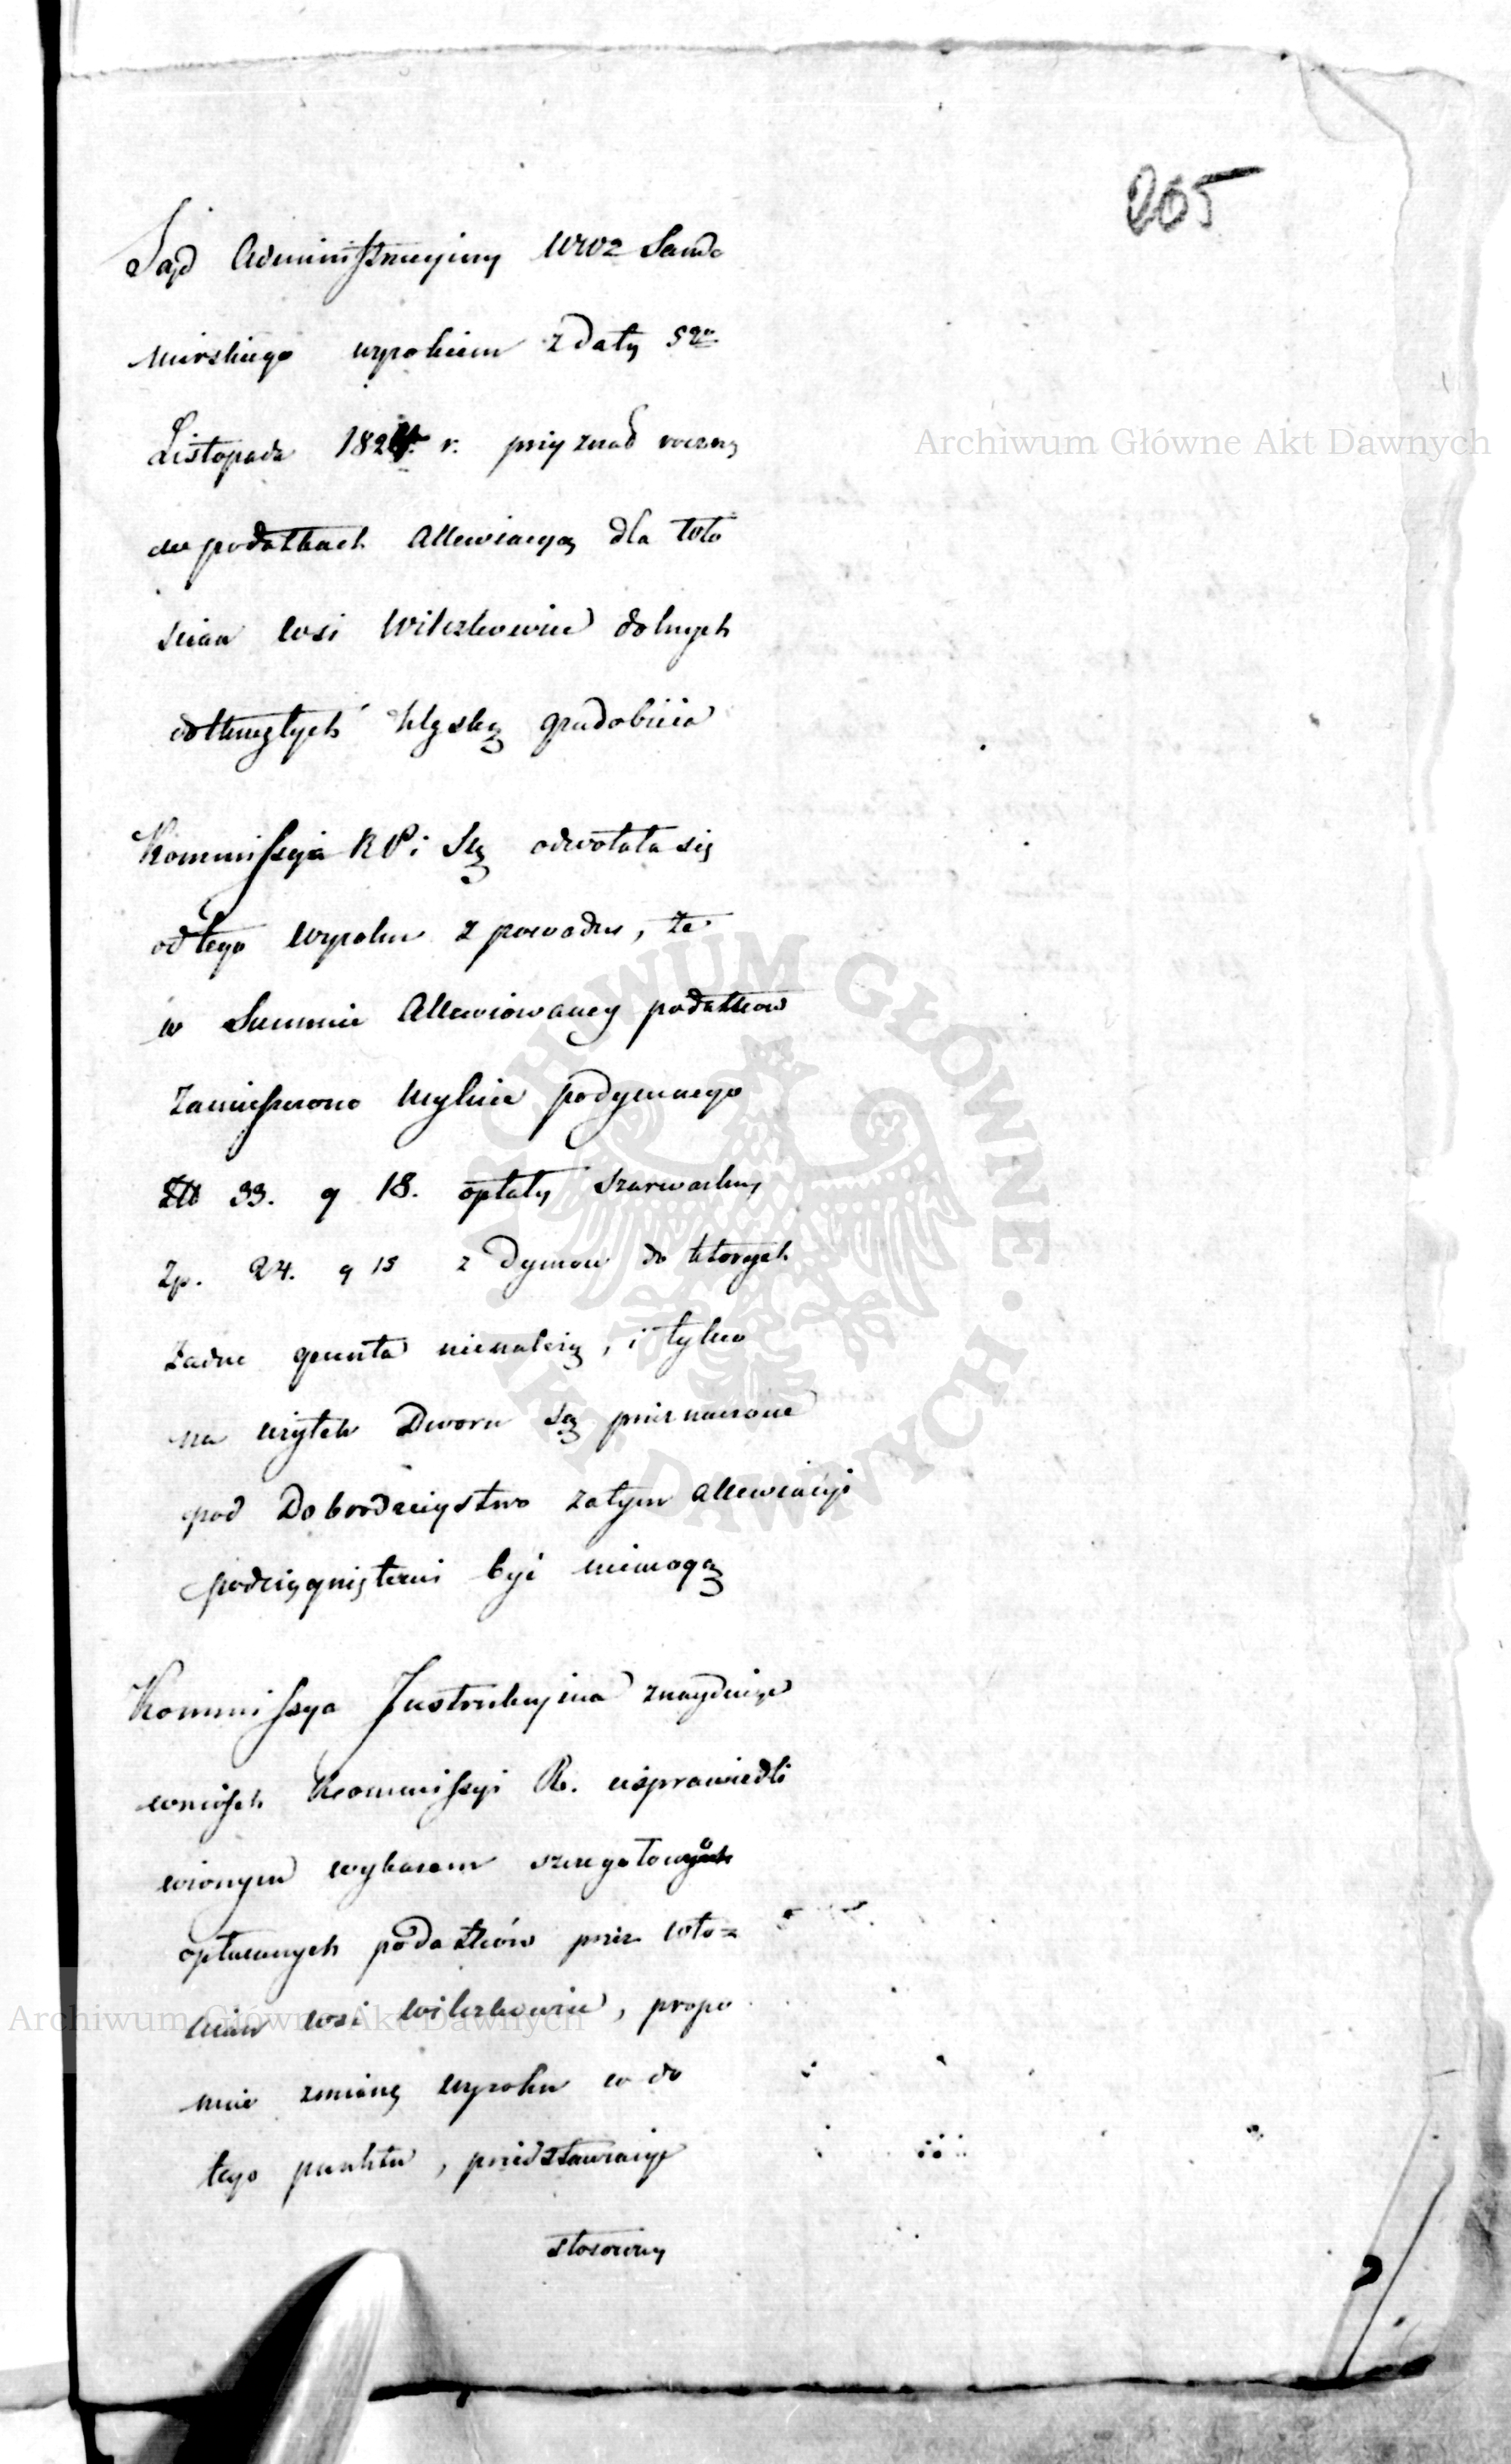 205
Sąd Administracyiny Wwz Sando
mirskiego wyrokiem z daty 5go
Listopada 1824. r. przyznał roczną
w podatkach allewiacyą dla wło
scian wsi Wilczkowic dolnych
dotkniętych klęską gradobicia
Kommissyia R P i Sk odwołała się
od tego wyroku z powodu, że
w Summie allewiowaney podatkow
zamieszczono mylnie podymnego
Złł 33. g 18. opłaty szarwarkowey
Zp. 24. g 15 z dymow do ktorych
żadne grunta nienależą, i tylko
na użytek Dworu są przeznaczone
pod Dobrodzieystwo zatym allewiacyi
podciągniętemi być niemogą
Kommissya Instrukcyina znayduiąc
wniosek Kommissyi R. usprawiedli
wionym wykazem szczegołowym
opłacanych podatków przez wło=
scian wsi Wilczkowic, propo
nuie zmianę wyroku co do
tego punktu, przedstawiaiąc
stosowny
Archiwum Główne Akt Dawnych
ARCHIWUM GŁÓWNE · AKT DAWNYCH ·
Archiwum Główne Akt Dawnych